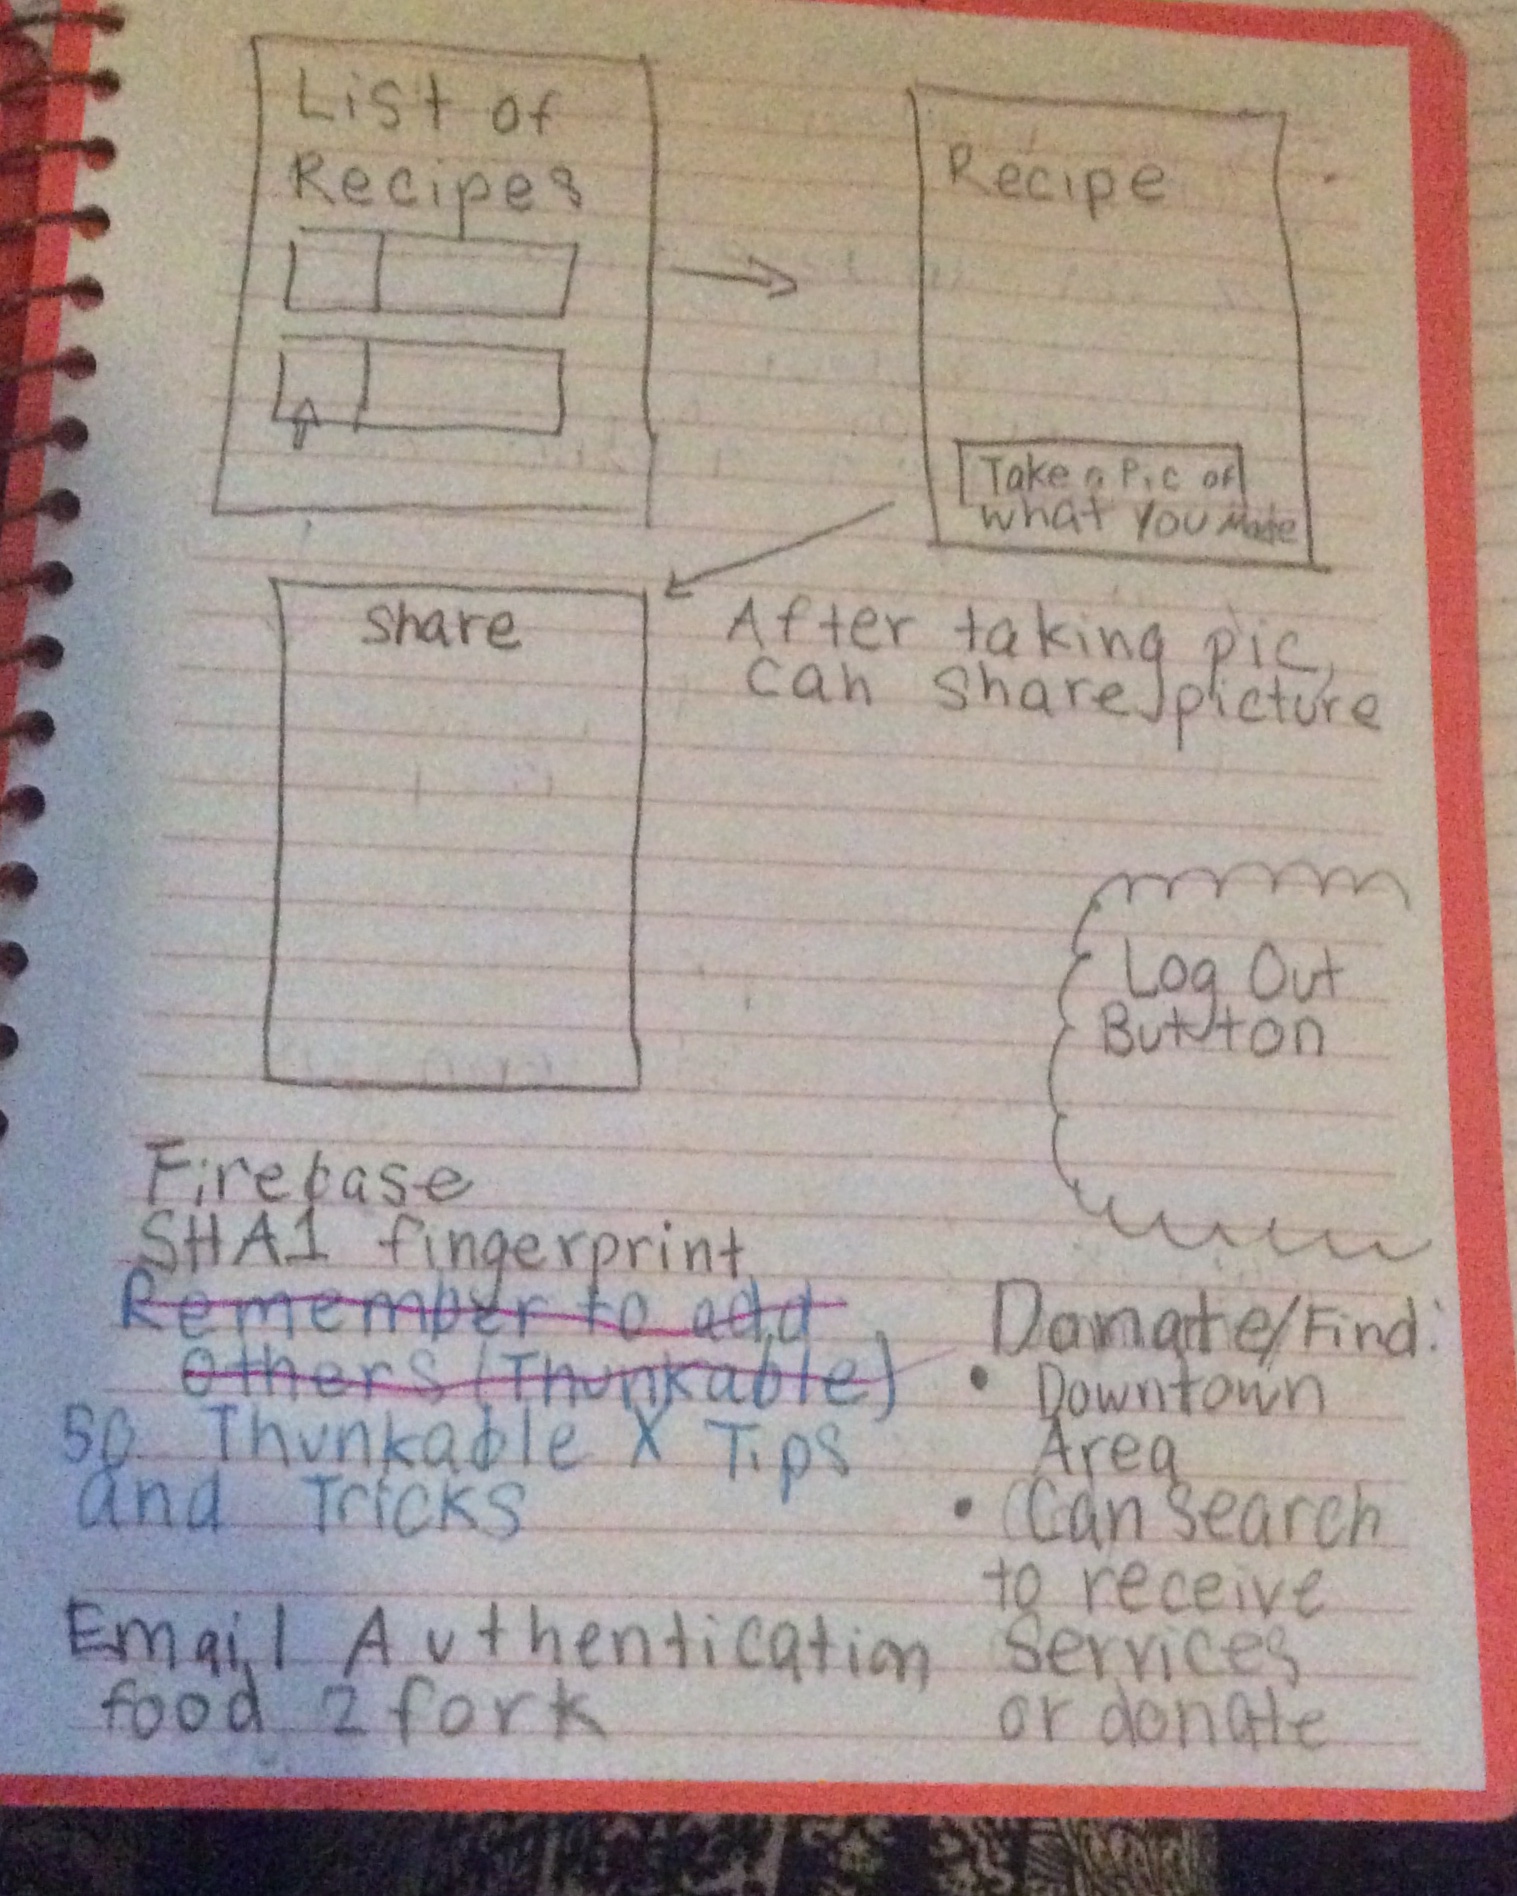 List of
Recipes
Recipe
Take a Pic of
what you Made
share
After taking pic,
can share picture
Log Out
Button
Firebase
SHA1 fingerprint
Remember to add
others (Thunkable)
50 Thunkable X Tips
and Tricks
Email Authentication
food 2 fork
Donate/Find:
• Downtown
Area
• Can search
to receive
services
or donate